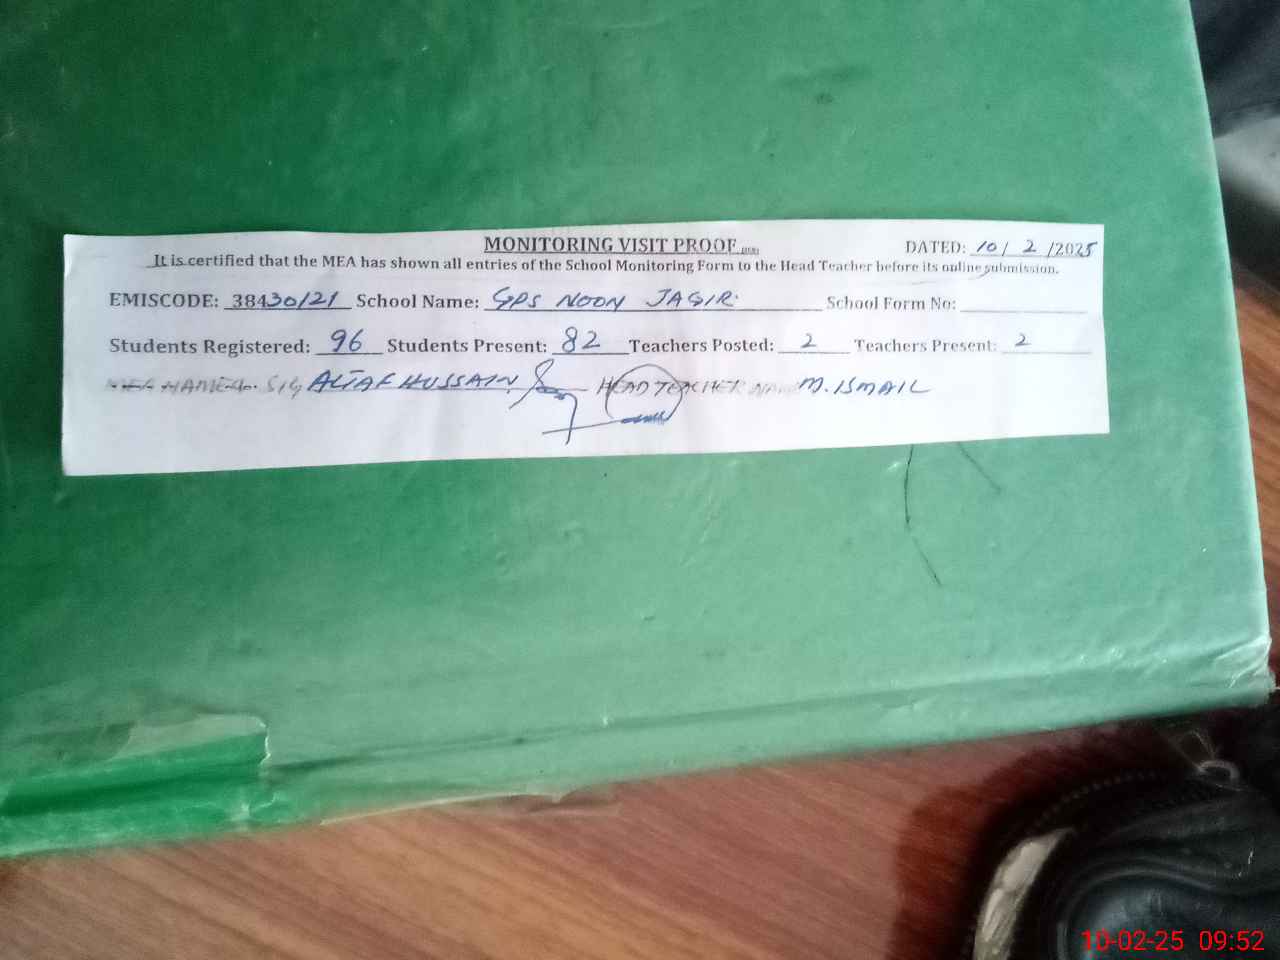 MONITORING VISIT PROOF
DATED: 10/ 2 /2025
It is certified that the MEA has shown all entries of the School Monitoring Form to the Head Teacher before its online submission.
EMISCODE: 38430121 School Name: GPS NOON JAGIR School Form No:
Students Registered: 96 Students Present: 82 Teachers Posted: 2 Teachers Present: 2
NAME & SIG ALTAF HUSSAIN HEAD TEACHER NAME M. ISMAIL
10-02-25 09:52